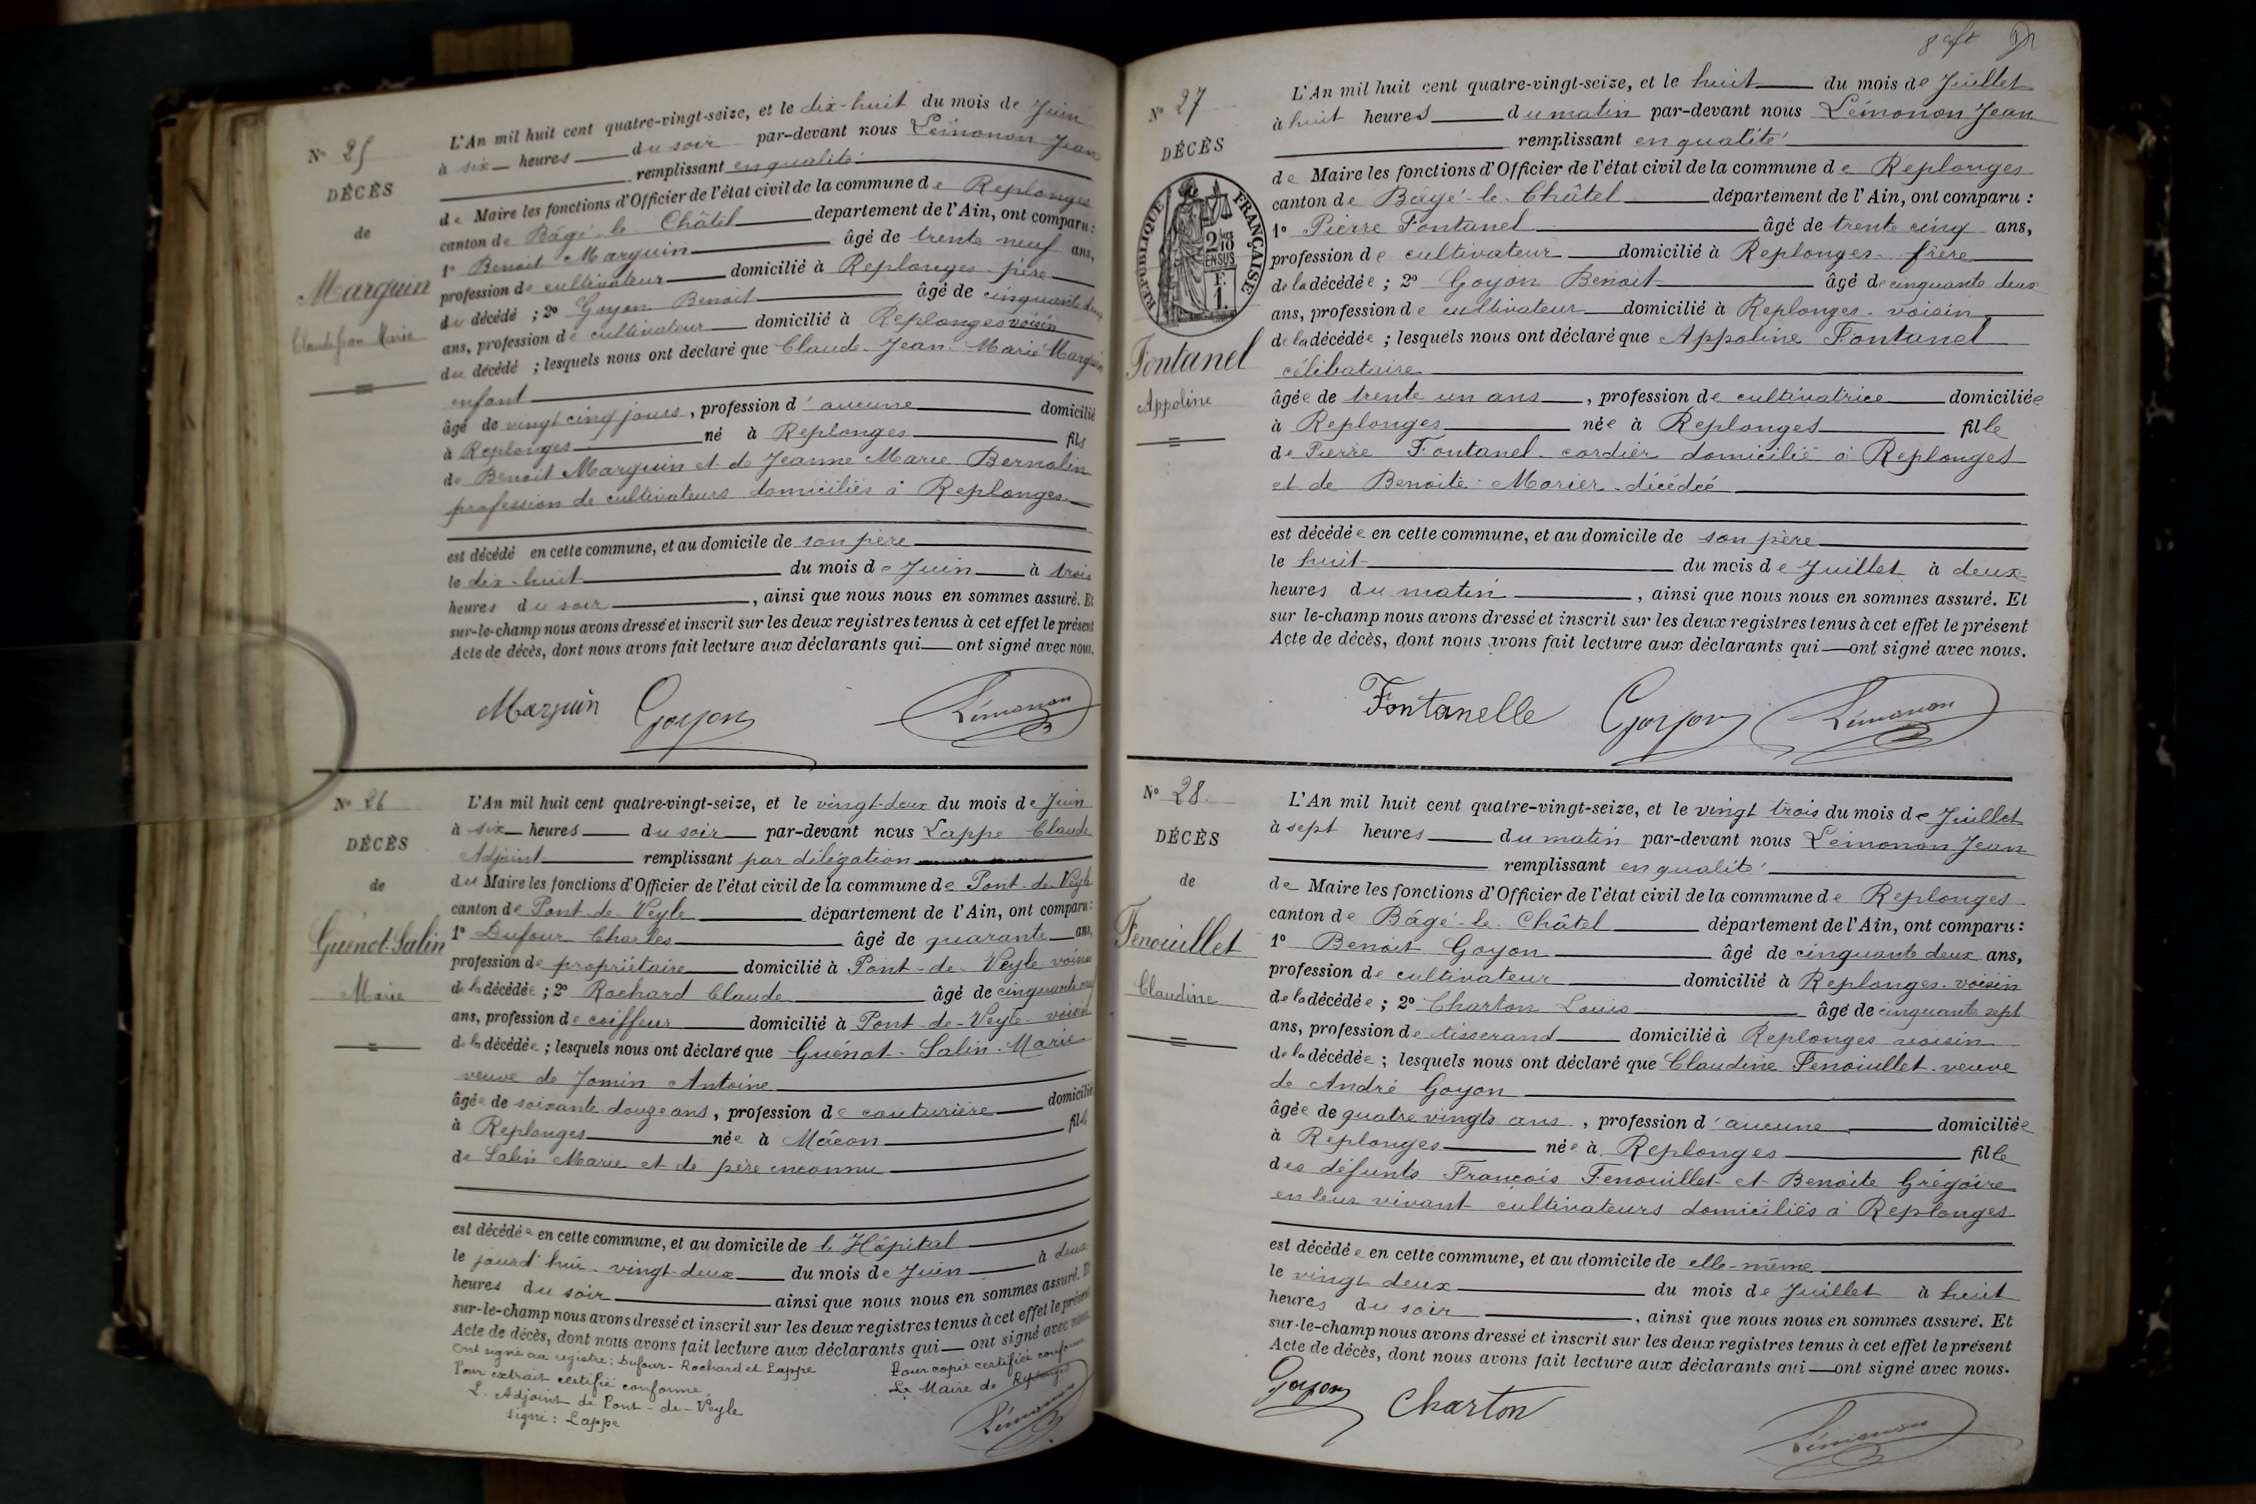 Nº 25
DÉCÈS
de
Marguin
Claude Jean Marie
L'An mil huit cent quatre-vingt-seize, et le dix-huit du mois de Juin
à six heures du soir par-devant nous Lémonon Jean
remplissant en qualité
de Maire les fonctions d'Officier de l'état civil de la commune de Replonges
canton de Bâgé-le-Châtel département de l'Ain, ont comparu:
1º Benoit Marguin âgé de trente neuf ans,
profession de cultivateur domicilié à Replonges père
du décédé ; 2º Goyon Benoit âgé de cinquante deux
ans, profession de cultivateur domicilié à Replonges voisin
du décédé ; lesquels nous ont déclaré que Claude Jean Marie Marguin
enfant
âgé de vingt cinq jours, profession d'aucune domicilié
à Replonges né à Replonges fils
de Benoit Marguin et de Jeanne Marie Bernolin
profession de cultivateurs domiciliés à Replonges
est décédé en cette commune, et au domicile de son père
le dix-huit du mois de Juin à trois
heures du soir, ainsi que nous nous en sommes assuré. Et
sur-le-champ nous avons dressé et inscrit sur les deux registres tenus à cet effet le présent
Acte de décès, dont nous avons fait lecture aux déclarants qui ont signé avec nous.
Marguin Goyon Lémonon
Nº 26
DÉCÈS
de
Guénot-Salin
Marie
L'An mil huit cent quatre-vingt-seize, et le vingt-deux du mois de Juin
à six heures du soir par-devant nous Lappe Claude
Adjoint remplissant par délégation
du Maire les fonctions d'Officier de l'état civil de la commune de Pont-de-Veyle
canton de Pont-de-Veyle département de l'Ain, ont comparu:
1º Dufour Charles âgé de quarante ans,
profession de propriétaire domicilié à Pont-de-Veyle voisin
de la décédée ; 2º Rochard Claude âgé de cinquante
ans, profession de coiffeur domicilié à Pont-de-Veyle voisin
de la décédée ; lesquels nous ont déclaré que Guénot-Salin Marie
veuve de Jomin Antoine
âgée de soixante douze ans, profession de couturière domicilié
à Replonges née à Mâcon fille
de Salin Marie et de père inconnu
est décédée en cette commune, et au domicile de l'Hôpital
le jourd'hui vingt-deux du mois de Juin à deux
heures du soir ainsi que nous nous en sommes assuré. Et
sur-le-champ nous avons dressé et inscrit sur les deux registres tenus à cet effet le présent
Acte de décès, dont nous avons fait lecture aux déclarants qui ont signé avec nous.
Ont signé au registre : Dufour - Rochard et Lappe
Pour extrait certifié conforme
L. Adjoint de Pont-de-Veyle
signé : Lappe
Pour copie certifiée conforme
Le Maire de Replonges
Lémonon
8 oft
Nº 27
DÉCÈS
RÉPUBLIQUE FRANÇAISE
2/10 EN SUS
1 F.
Fontanel
Appoline
L'An mil huit cent quatre-vingt-seize, et le huit du mois de Juillet
à huit heures du matin par-devant nous Lémonon Jean
remplissant en qualité
de Maire les fonctions d'Officier de l'état civil de la commune de Replonges
canton de Bâgé-le-Châtel département de l'Ain, ont comparu :
1º Pierre Fontanel âgé de trente cinq ans,
profession de cultivateur domicilié à Replonges frère
de la décédée ; 2º Goyon Benoit âgé de cinquante deux
ans, profession de cultivateur domicilié à Replonges voisin
de la décédée ; lesquels nous ont déclaré que Appoline Fontanel
célibataire
âgée de trente un ans, profession de cultivatrice domiciliée
à Replonges née à Replonges fille
de Pierre Fontanel cordier domicilié à Replonges
et de Benoite Morier décédée
est décédée en cette commune, et au domicile de son père
le huit du mois de Juillet à deux
heures du matin, ainsi que nous nous en sommes assuré. Et
sur le-champ nous avons dressé et inscrit sur les deux registres tenus à cet effet le présent
Acte de décès, dont nous avons fait lecture aux déclarants qui ont signé avec nous.
Fontanelle Goyon Lémonon
Nº 28
DÉCÈS
de
Fenouillet
Claudine
L'An mil huit cent quatre-vingt-seize, et le vingt trois du mois de Juillet
à sept heures du matin par-devant nous Lémonon Jean
remplissant en qualité
de Maire les fonctions d'Officier de l'état civil de la commune de Replonges
canton de Bâgé-le-Châtel département de l'Ain, ont comparu:
1º Benoit Goyon âgé de cinquante deux ans,
profession de cultivateur domicilié à Replonges voisin
de la décédée ; 2º Charton Louis âgé de cinquante sept
ans, profession de tisserand domicilié à Replonges voisin
de la décédée ; lesquels nous ont déclaré que Claudine Fenouillet veuve
de André Goyon
âgée de quatre vingts ans, profession d'aucune domiciliée
à Replonges née à Replonges fille
des défunts François Fenouillet et Benoite Grégoire
en leur vivant cultivateurs domiciliés à Replonges
est décédée en cette commune, et au domicile de elle-même
le vingt deux du mois de Juillet à huit
heures du soir, ainsi que nous nous en sommes assuré. Et
sur-le-champ nous avons dressé et inscrit sur les deux registres tenus à cet effet le présent
Acte de décès, dont nous avons fait lecture aux déclarants qui ont signé avec nous.
Goyon Charton Lémonon